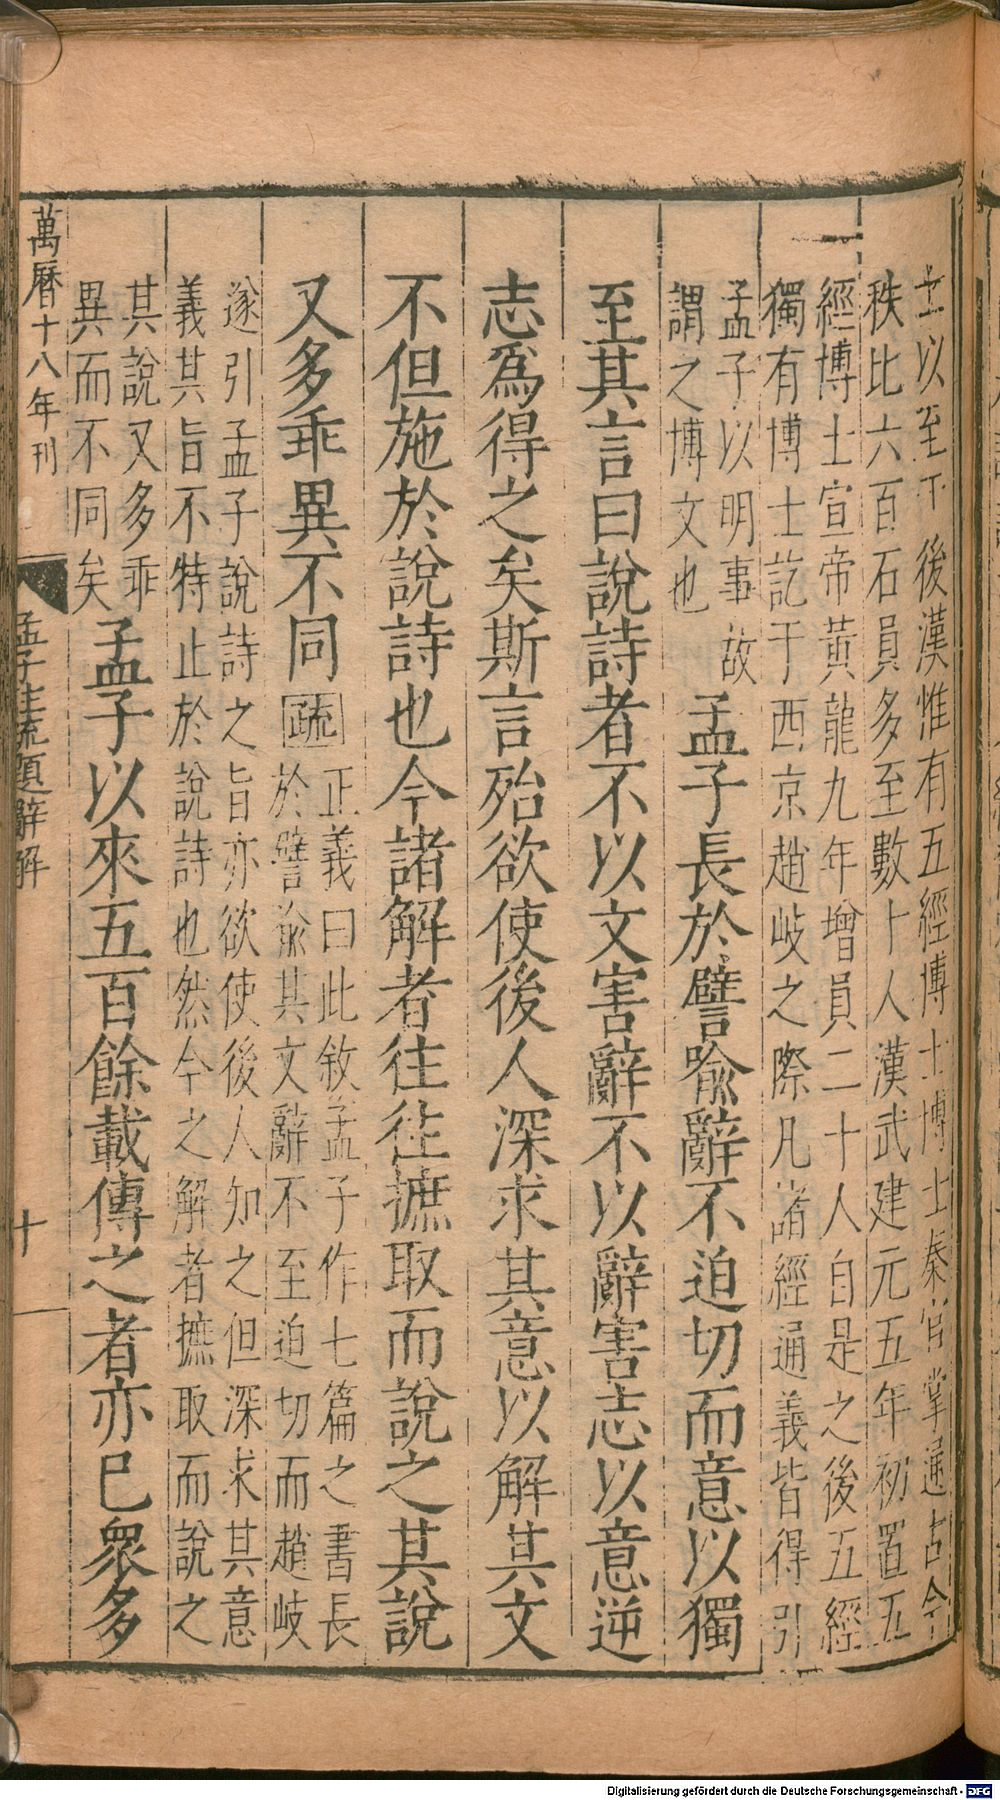 士以至下後漢惟有五經博士博士秦官掌通古今
秩比六百石員多至數十人漢武建元五年初置五
經博士宣帝黃龍九年增員二十人自是之後五經
獨有博士訖于西京趙岐之際凡諸經通義皆得引
孟子以明事故
謂之博文也
孟子長於譬喻辭不迫切而意以獨
至其言曰說詩者不以文害辭不以辭害志以意逆
志爲得之矣斯言殆欲使後人深求其意以解其文
不但施於說詩也今諸解者往往摭取而說之其說
又多乖異不同
疏
正義曰此敘孟子作七篇之書長
於譬喻其文辭不至迫切而趙岐
遂引孟子說詩之旨亦欲使後人知之但深求其意
義其旨不特止於說詩也然今之解者摭取而說之
其說又多乖
異而不同矣
孟子以來五百餘載傳之者亦已衆多
萬曆十八年刊
孟子注疏題辭解
十
Digitalisierung gefördert durch die Deutsche Forschungsgemeinschaft - DFG